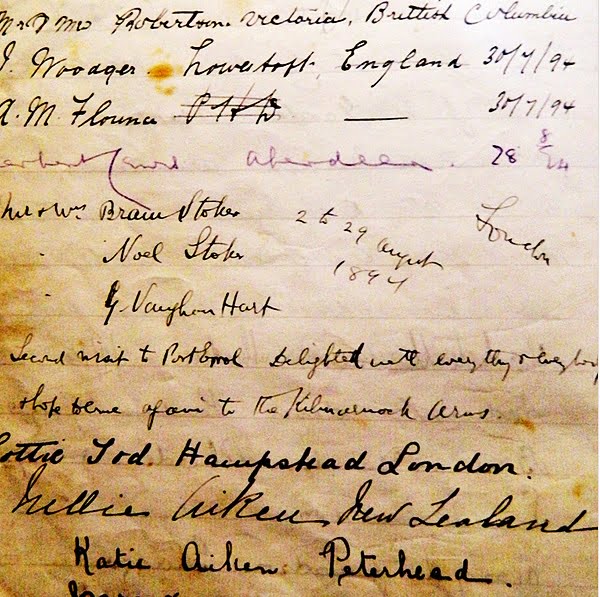 Mr & Mrs Robertson Victoria, Brittish Columbia
J. Woodger. Lowestoft, England 30/7/94
A. M. Flounce P H B — 30/7/94
Herbert Aberdeen. 28 8/94
Mr & Mrs Bram Stoker 2 to 29 August 1894 London
" Noel Stoker
" G. Vaughan Hart
Second visit to Port Erroll Delighted with everything & everybody
& hope to come again to the Kilmarnock Arms.
Lottie Tod. Hampstead London.
Nellie Aiken New Zealand
Katie Aiken Peterhead.